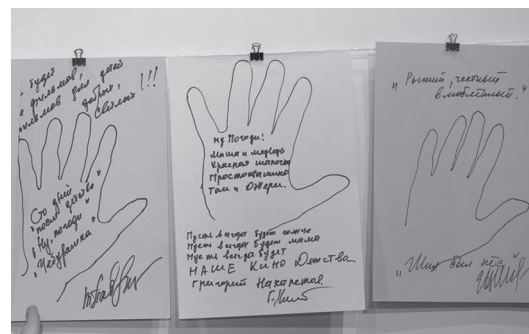 будет
фильмов,
фильмов для детей
добрых,
светлых!!!
Сто дней
после детства"
"Ну, погоди"
"Чебурашка"
Ну Погоди!
Маша и медведь
Красная шапочка
Простоквашино
Том и Джери.
Пусть всегда будет солнце
Пусть всегда будет мама
Пусть всегда будет
НАШЕ Кино Детства...
Григорий
"Рыжий, честный
влюбленный."
"Жил был пёс"